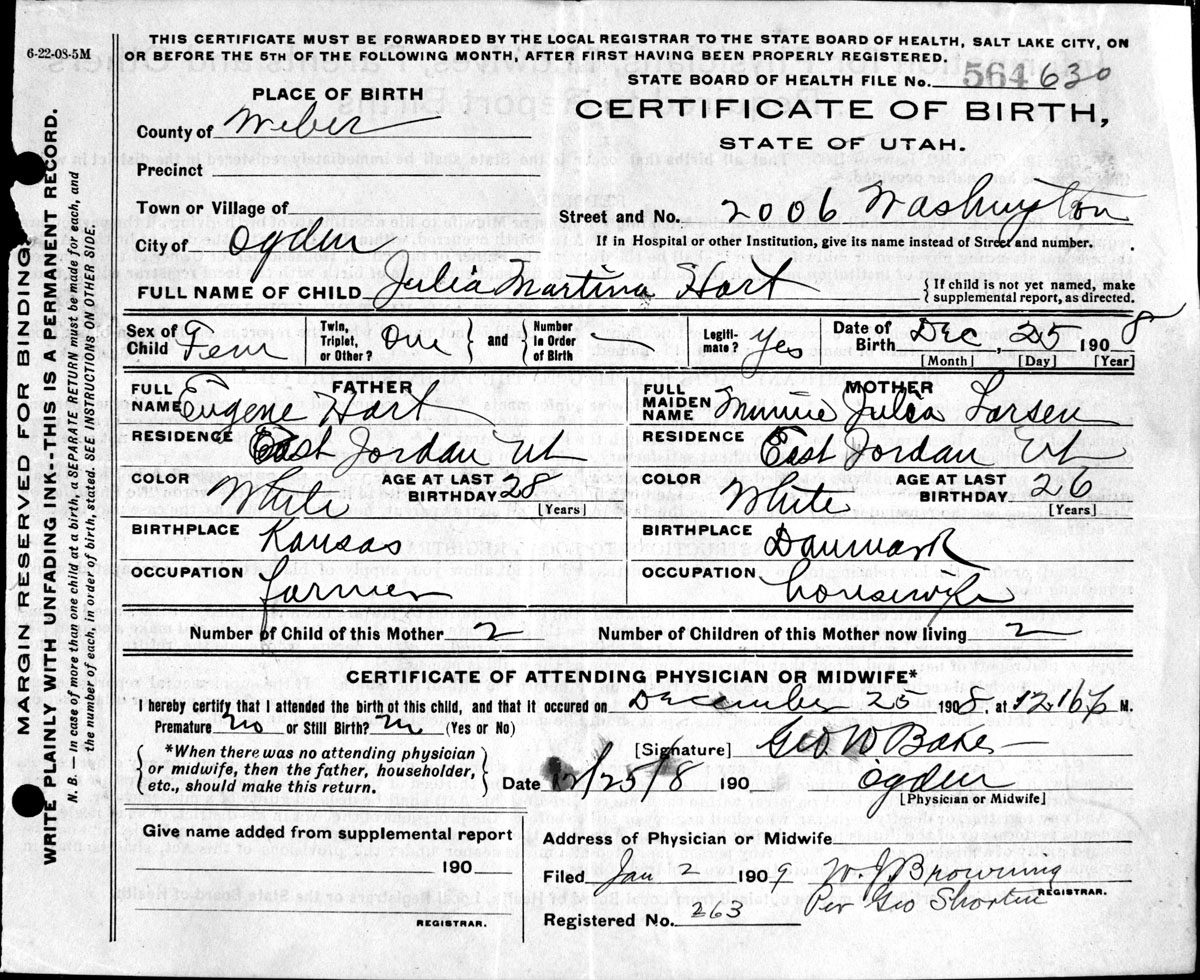 6-22-08-5M
THIS CERTIFICATE MUST BE FORWARDED BY THE LOCAL REGISTRAR TO THE STATE BOARD OF HEALTH, SALT LAKE CITY, ON
OR BEFORE THE 5TH OF THE FOLLOWING MONTH, AFTER FIRST HAVING BEEN PROPERLY REGISTERED.
STATE BOARD OF HEALTH FILE No. 564 630
PLACE OF BIRTH
CERTIFICATE OF BIRTH,
STATE OF UTAH.
County of Weber
Precinct
Town or Village of
Street and No. 2006 Washington
City of Ogden
If in Hospital or other Institution, give its name instead of Street and number.
FULL NAME OF CHILD Julia Martina Hart
{If child is not yet named, make
supplemental report, as directed.
Sex of Child Fem
Twin, Triplet, or Other? One } and { Number in Order of Birth —
Legitimate? Yes
Date of Birth Dec, 25 1908
[Month] [Day] [Year]
FATHER
FULL NAME Eugene Hart
RESIDENCE East Jordan Ut
COLOR White AGE AT LAST BIRTHDAY 28 [Years]
BIRTHPLACE Kansas
OCCUPATION farmer
MOTHER
FULL MAIDEN NAME Minnie Julia Larsen
RESIDENCE East Jordan Ut
COLOR White AGE AT LAST BIRTHDAY 26 [Years]
BIRTHPLACE Danmark
OCCUPATION housewife
Number of Child of this Mother 2 Number of Children of this Mother now living 2
CERTIFICATE OF ATTENDING PHYSICIAN OR MIDWIFE*
I hereby certify that I attended the birth of this child, and that it occured on December 25 1908, at M.
Premature? no or Still Birth? n (Yes or No)
{*When there was no attending physician
or midwife, then the father, householder,
etc., should make this return.}
[Signature] Geo W Baker
Date 12/25/8 190 Ogden
[Physician or Midwife]
Give name added from supplemental report
190
REGISTRAR.
Address of Physician or Midwife
Filed Jan 2 1909 W. J. Browning
REGISTRAR.
Per Geo Shorten
Registered No. 263
MARGIN RESERVED FOR BINDING.
WRITE PLAINLY WITH UNFADING INK--THIS IS A PERMANENT RECORD.
N. B.—In case of more than one child at a birth, a SEPARATE RETURN must be made for each, and
the number of each, in order of birth, stated. SEE INSTRUCTIONS ON OTHER SIDE.